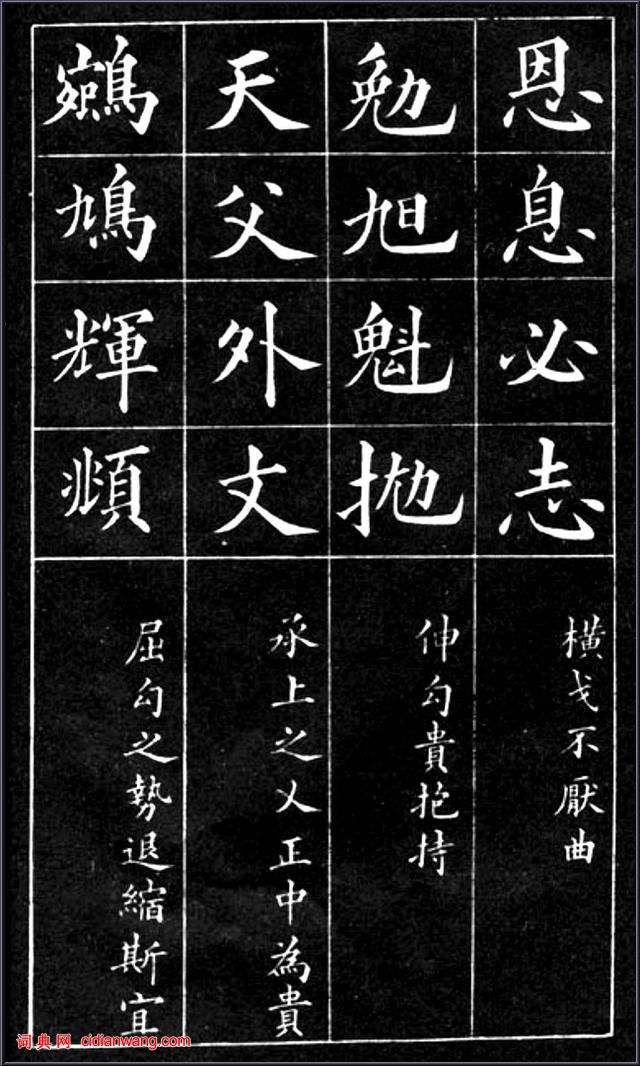 恩息必志
橫戈不厭曲
勉旭魁拋
伸勾貴抱持
天父外丈
承上之乂正中為貴
鳩輝頫
屈勾之勢退縮斯宜
词典网 cidianwang.com